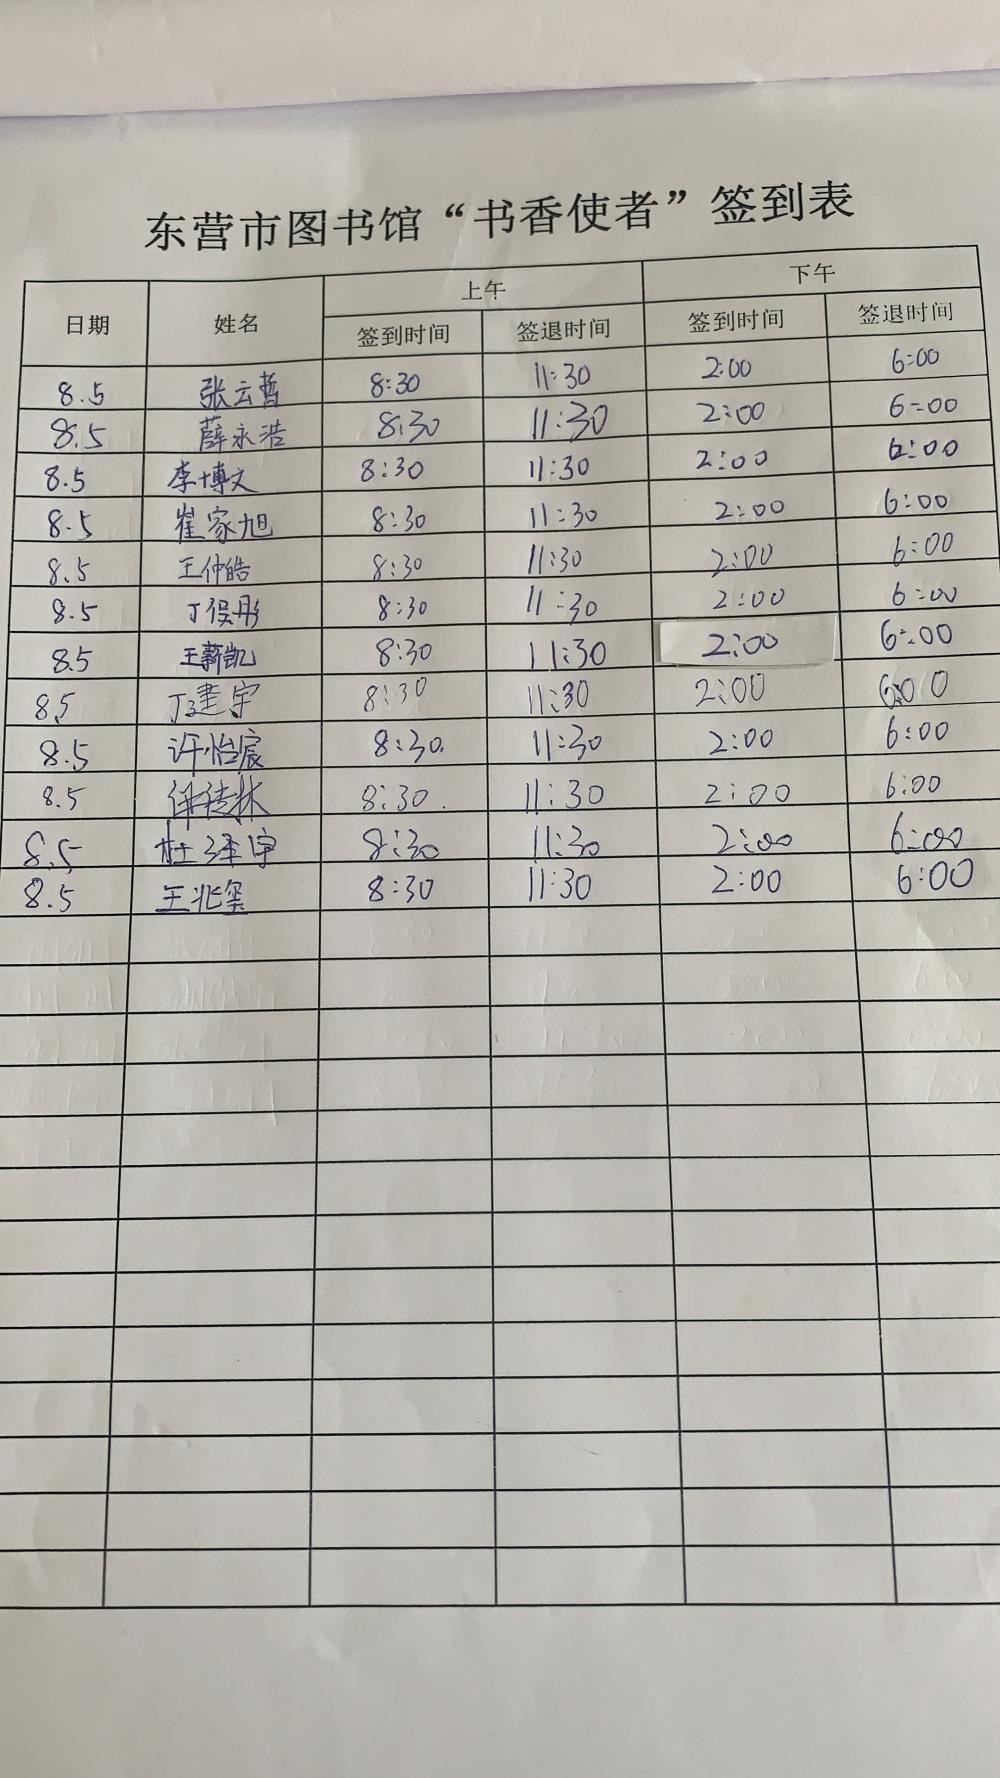 东营市图书馆“书香使者”签到表
日期 姓名 上午 下午
签到时间 签退时间 签到时间 签退时间
8.5 张云哲 8:30 11:30 2:00 6:00
8.5 薛永浩 8:30 11:30 2:00 6:00
8.5 李博文 8:30 11:30 2:00 6:00
8.5 崔家旭 8:30 11:30 2:00 6:00
8.5 王仲皓 8:30 11:30 2:00 6:00
8.5 丁俊彤 8:30 11:30 2:00 6:00
8.5 王薪凯 8:30 11:30 2:00 6:00
8.5 丁建宇 8:30 11:30 2:00 6:00
8.5 许怡宸 8:30. 11:30 2:00 6:00
8.5 8:30. 11:30 2:00 6:00
8.5 杜泽宇 8:30 11:30 2:00 6:00
8.5 王兆玺 8:30 11:30 2:00 6:00